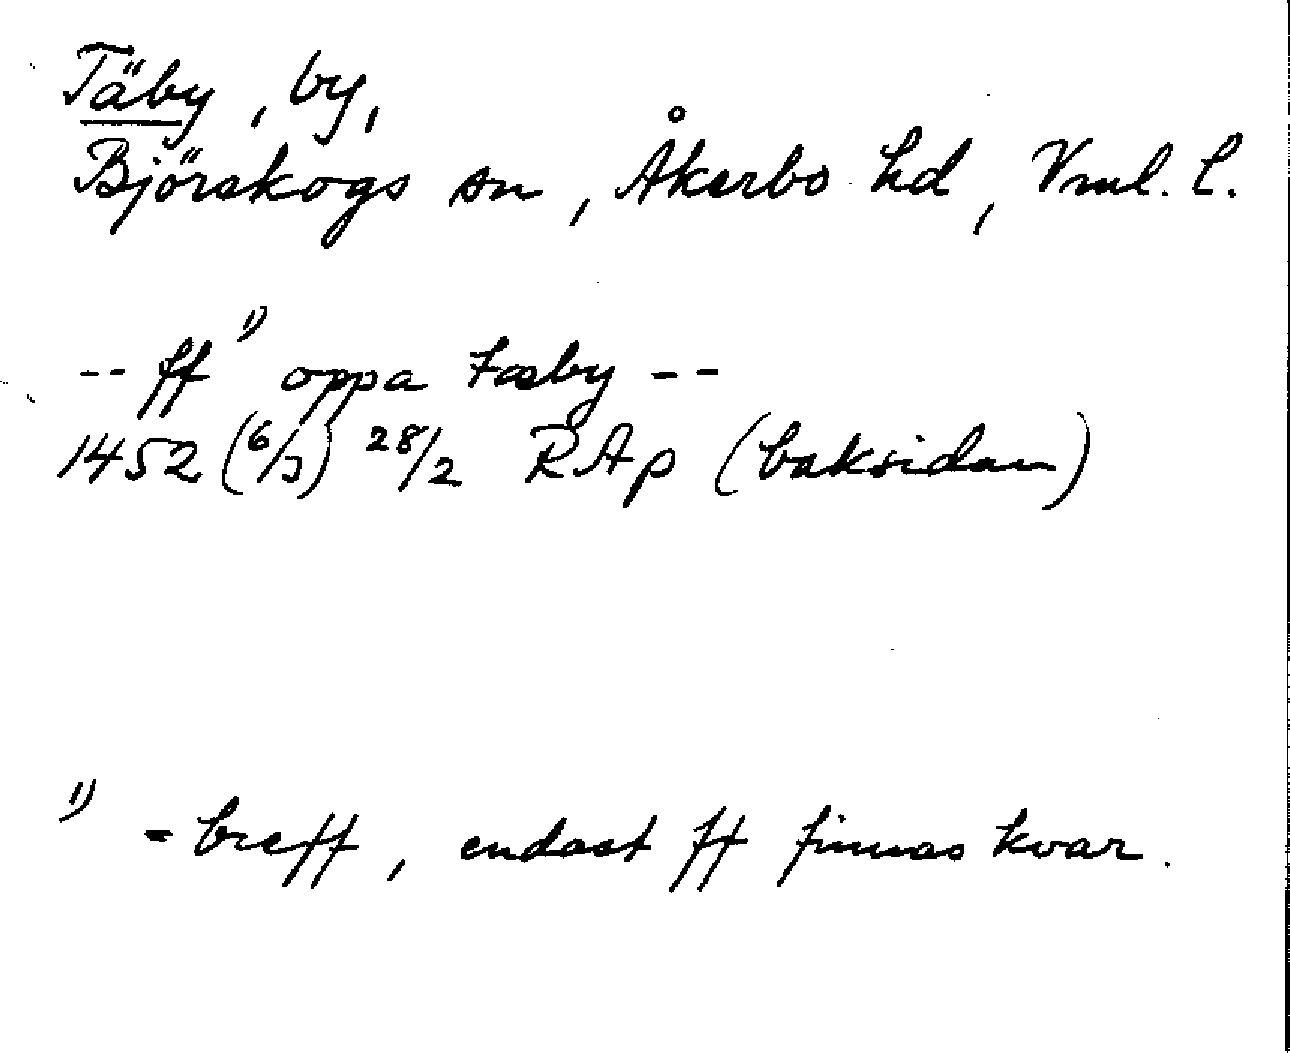 Täby, by,
Björskogs sn, Åkerbo hd, Vml. l.
-- ff 1) oppa tæby --
1452 (6/3) 28/2 RAp (baksidan)
1) = breff, endast ff finnas kvar.